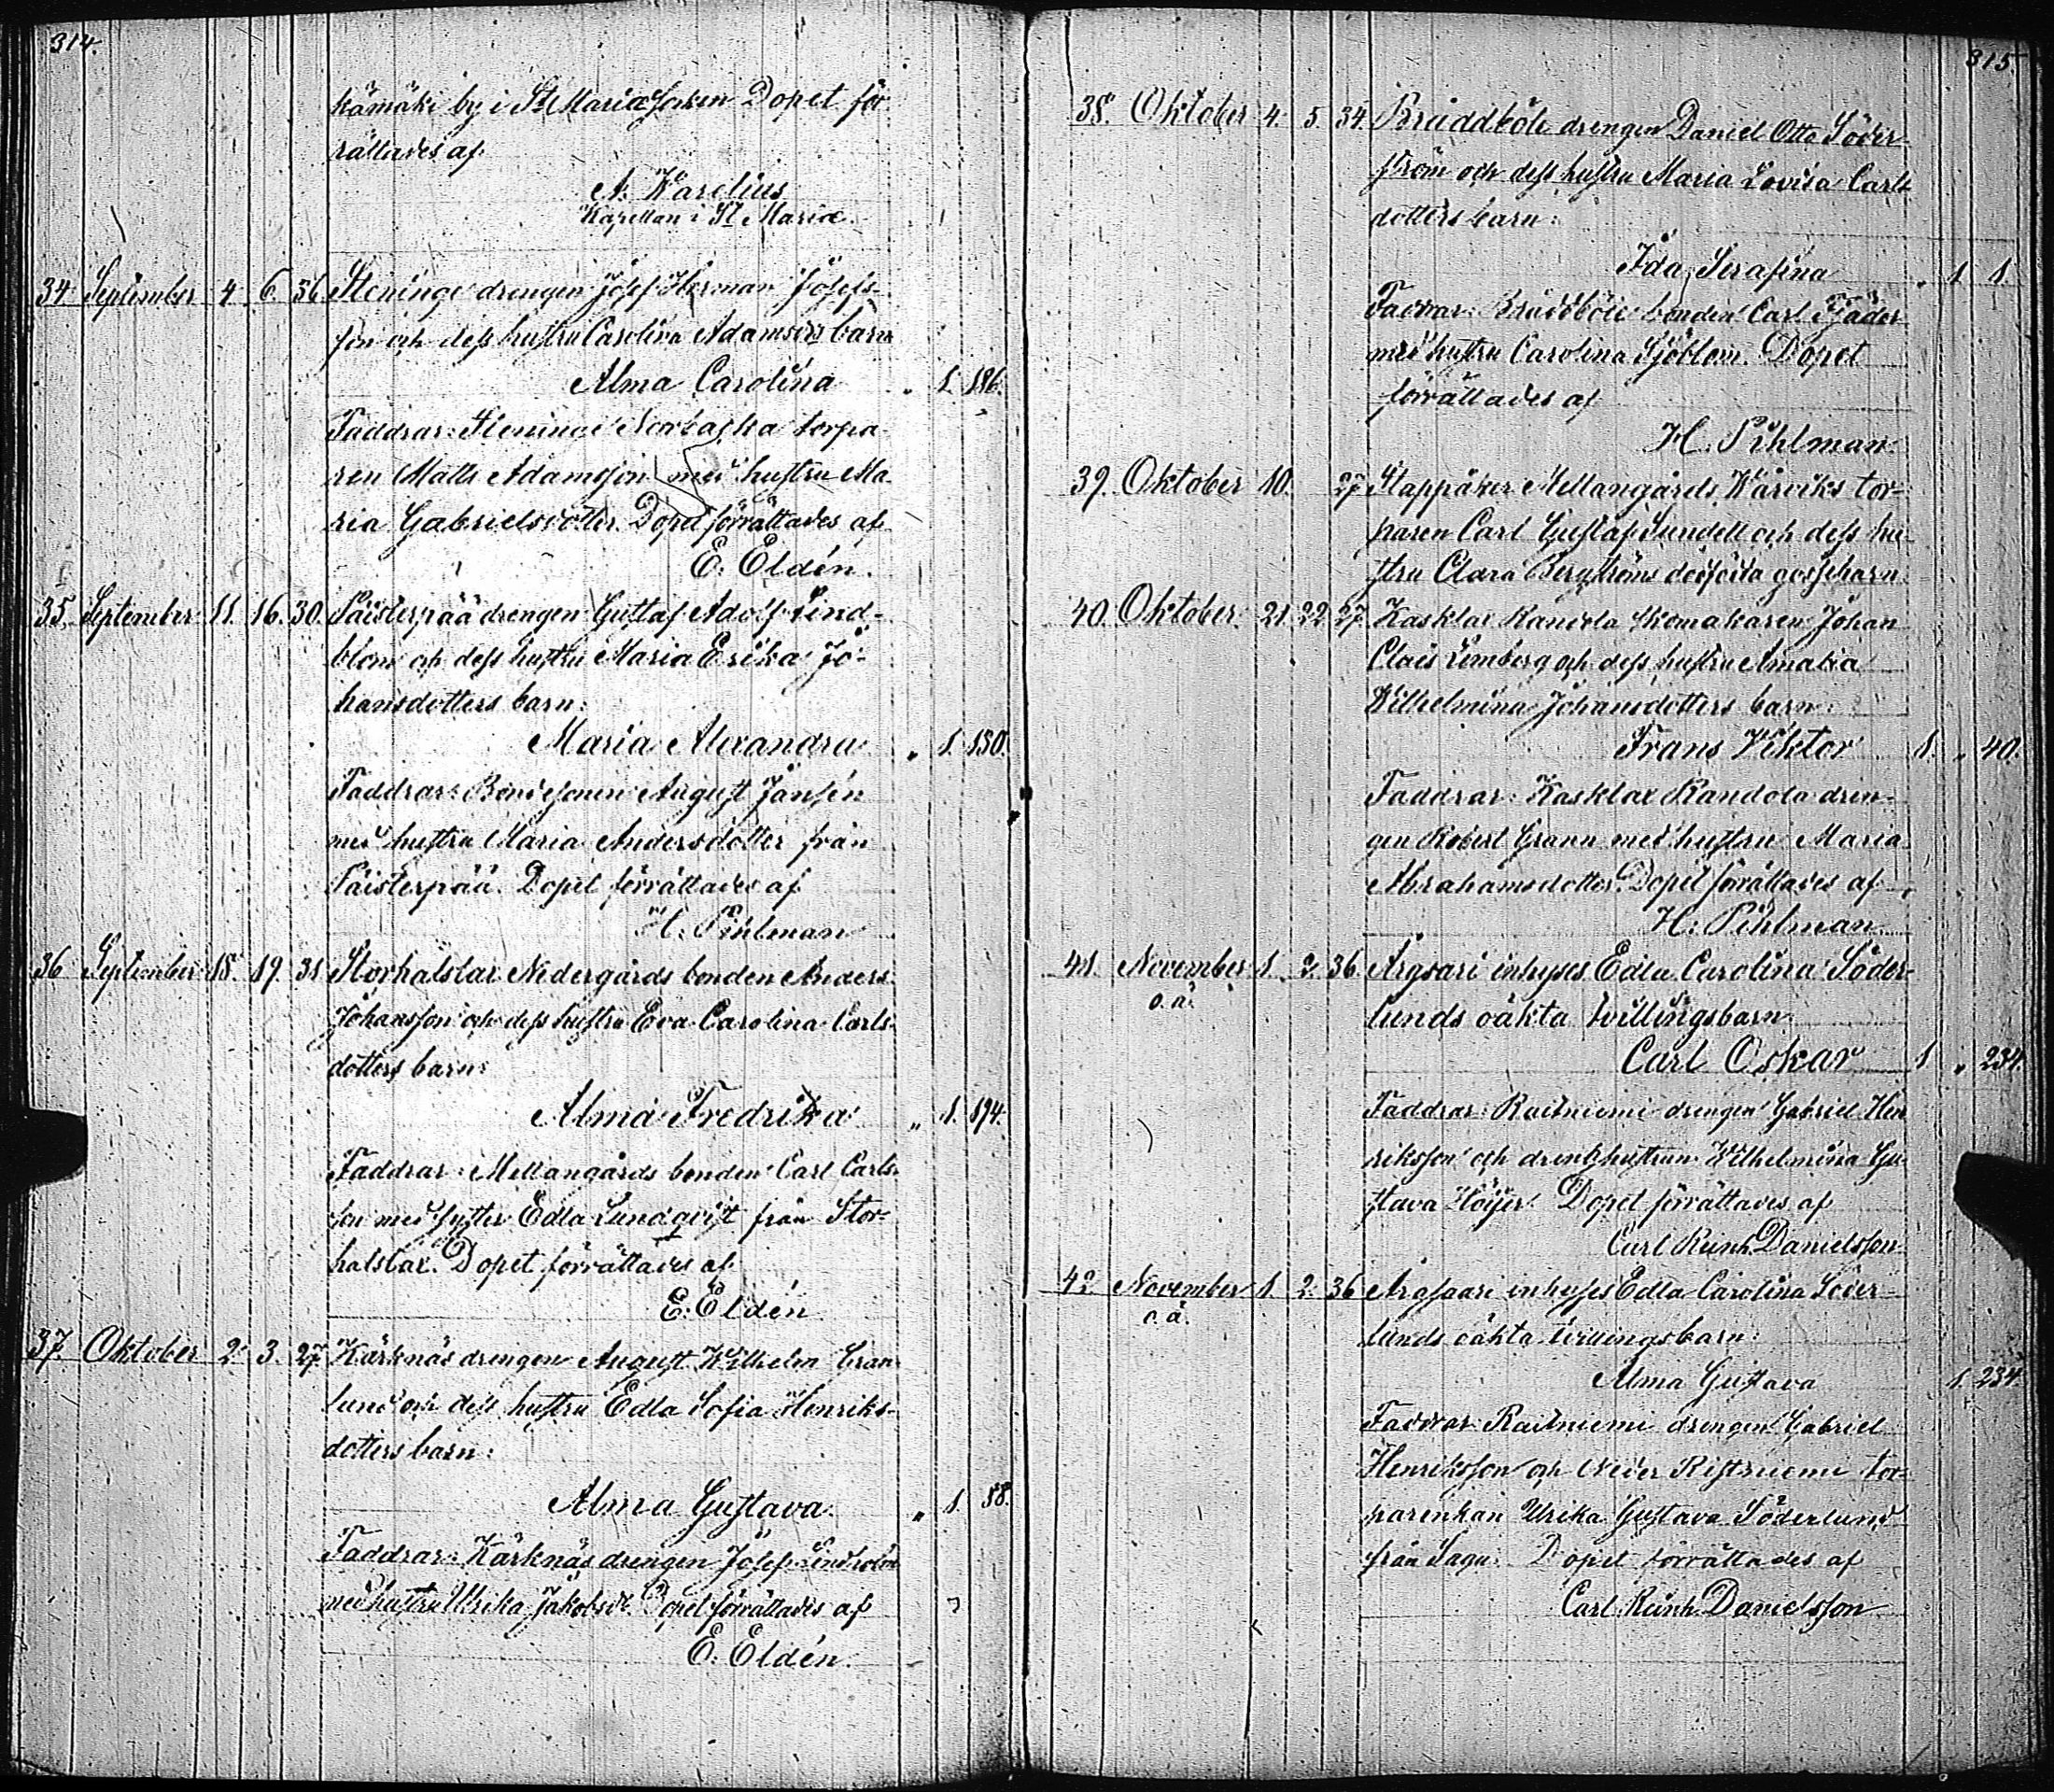 314.
kämäki by i St Mariæ Socken Dopet för
rättades af
A. Warelius
Kapellan i St Mariæ.
34 September 4. 6. 36. Steninge drengen Josef Herman Josefs-
son och dess hustru Carolina Adamsdrs barn
Alma Carolina „ 1. 186.
Faddrar: Steninge Norrbacka torpa-
ren Matts Adamsson med hustru Ma-
ria Gabrielsdotter. Dopet förrättades af
E. Eldén.
35. September 11. 16. 30. Päisterpää drengen Gustaf Adolf Lind-
blom och dess hustru Maria Erika Jo-
hansdotters barn:
Maria Alexandra „ 1. 130.
Faddrar: Bondesonen August Jansén
med hustru Maria Andersdotter från
Päisterpää. Dopet förrättades af
H. Pihlman
36 September 18. 19. 31 Storhalslax Nedergårds bonden Anders
Johansson och dess hustru Eva Carolina Carls-
dotters barn:
Alma Fredrika „ 1. 194.
Faddrar: Mellangårds bonden Carl Carls-
son med syster Edla Lundqvist från Stor-
halslax. Dopet förrättades af
E. Eldén
37. Oktober 2. 3. 27. Kärknäs drengen August Wilhelm Gran-
lund och dess hustru Edla Sofia Henriks-
dotters barn:
Alma Gustava „ 1. 88.
Faddrar: Kärknäs drengen Josef
med hustru Ulrika Jakobsdr. Dopet förrättades af
E. Eldén.
315.
38. Oktober 4. 5. 34. Bruddböle drengen Daniel Otto Söder-
ström och dess hustru Maria Lovisa Carls-
dotters barn:
Ida Serafina „ 1 1.
Faddrar: Bruddböle bonden Carl Fjäder
med hustru Carolina Sjöblom. Dopet
förrättades af
H. Pihlman
39. Oktober 10. 27 Mellangårds Warviks tor-
paren Carl Gustaf Sundell och dess hu-
stru Clara Bergströms dödfödda gossebarn.
40. Oktober. 21. 22 27. Kasklax Randola skomakaren Johan
Claes Limberg och dess hustru Amalia
Wilhelmina Johansdotters barn:
Frans Viktor 1. „ 40.
Faddrar: Kasklax Randola dren-
gen Robert Grann med hustru Maria
Abrahamsdotter. Dopet förrättades af
H. Pihlman
41. November 1. 2. 36. Argsari inhyses Edla Carolina Söder-
o. ä.
lunds oäkta tvillingsbarn:
Carl Oskar 1 „ 234.
Faddrar: Raitniemi drengen Gabriel Hen
riksson och drenghustrun Wilhelmina Gu-
stava Höijer. Dopet förrättades af
Carl Reinh. Danielsson
42 November 1. 2. 36 Argsaari inhyses Edla Carolina Söder-
o. ä.
lunds oäkta tvillingsbarn:
Alma Gustava 1. 234.
Faddrar: Raitniemi drengen Gabriel
Henriksson och Neder Ristniemi tor-
parenkan Ulrika Gustava Söderlund
från Sagu. Dopet förrättades af
Carl Reinh. Danielsson